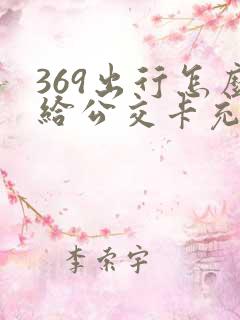 369出行怎
给公交卡充
李索宇